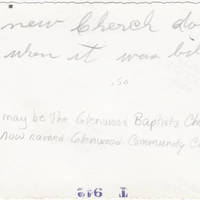 new Cherch do
when it was bil
.50
may be The Glenwood Baptists Che
now named Glenwood Community C
T 942